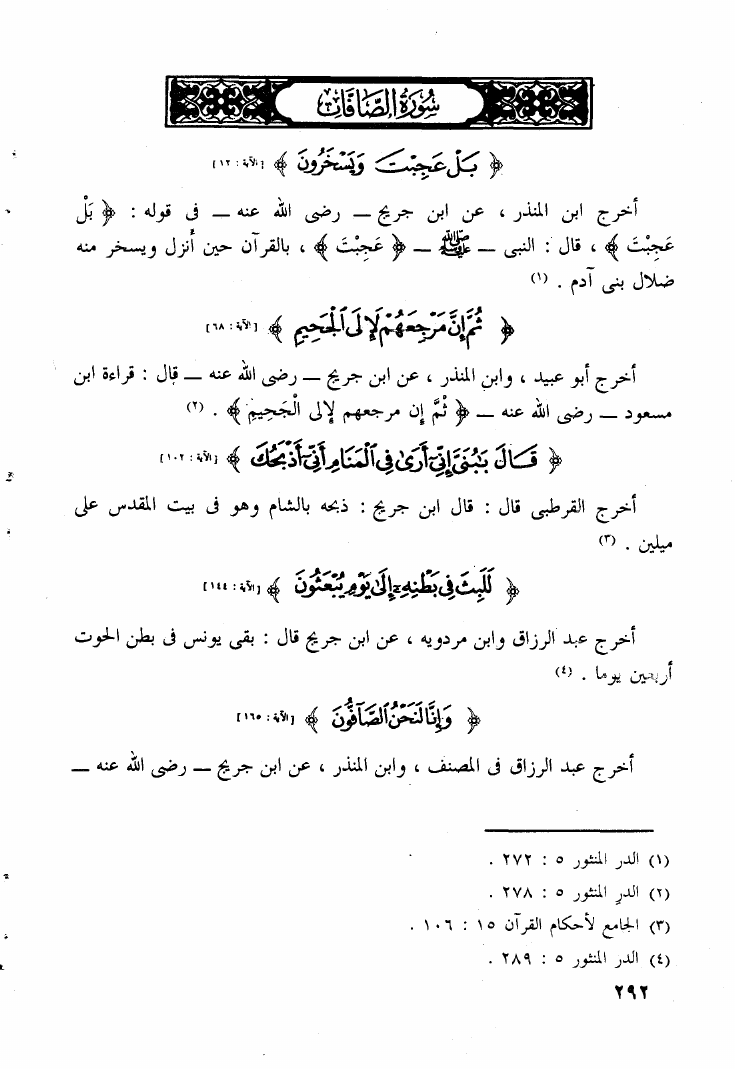 سُورَةُ الصَّافَّاتِ
﴿ بَلْ عَجِبْتَ وَيَسْخَرُونَ ﴾ [الآية : ١٢]
أخرج ابن المنذر ، عن ابن جريج ــ رضى الله عنه ــ فى قوله : ﴿ بَلْ
عَجِبْتَ ﴾ ، قال : النبى ــ ﷺ ــ ﴿ عَجِبْتَ ﴾ ، بالقرآن حين أُنزل ويسخر منه
ضلال بنى آدم . (١)
﴿ ثُمَّ إِنَّ مَرْجِعَهُمْ لَإِلَى ٱلْجَحِيمِ ﴾ [الآية : ٦٨]
أخرج أبو عبيد ، وابن المنذر ، عن ابن جريج ــ رضى الله عنه ــ قال : قراءة ابن
مسعود ــ رضى الله عنه ــ ﴿ ثُمَّ إن مرجعهم لإلى الْجَحِيمِ ﴾ . (٢)
﴿ قَالَ يَٰبُنَيَّ إِنِّيٓ أَرَىٰ فِي ٱلْمَنَامِ أَنِّيٓ أَذْبَحُكَ ﴾ [الآية : ١٠٢]
أخرج القرطبى قال : قال ابن جريج : ذبحه بالشام وهو فى بيت المقدس على
ميلين . (٣)
﴿ لَلَبِثَ فِي بَطْنِهِۦٓ إِلَىٰ يَوْمِ يُبْعَثُونَ ﴾ [الآية : ١٤٤]
أخرج عبد الرزاق وابن مردويه ، عن ابن جريج قال : بقى يونس فى بطن الحوت
أربعين يوما . (٤)
﴿ وَإِنَّا لَنَحْنُ ٱلصَّآفُّونَ ﴾ [الآية : ١٦٥]
أخرج عبد الرزاق فى المصنف ، وابن المنذر ، عن ابن جريج ــ رضى الله عنه ــ
(١) الدر المنثور ٥ : ٢٧٢ .
(٢) الدر المنثور ٥ : ٢٧٨ .
(٣) الجامع لأحكام القرآن ١٥ : ١٠٦ .
(٤) الدر المنثور ٥ : ٢٨٩ .
٢٩٢